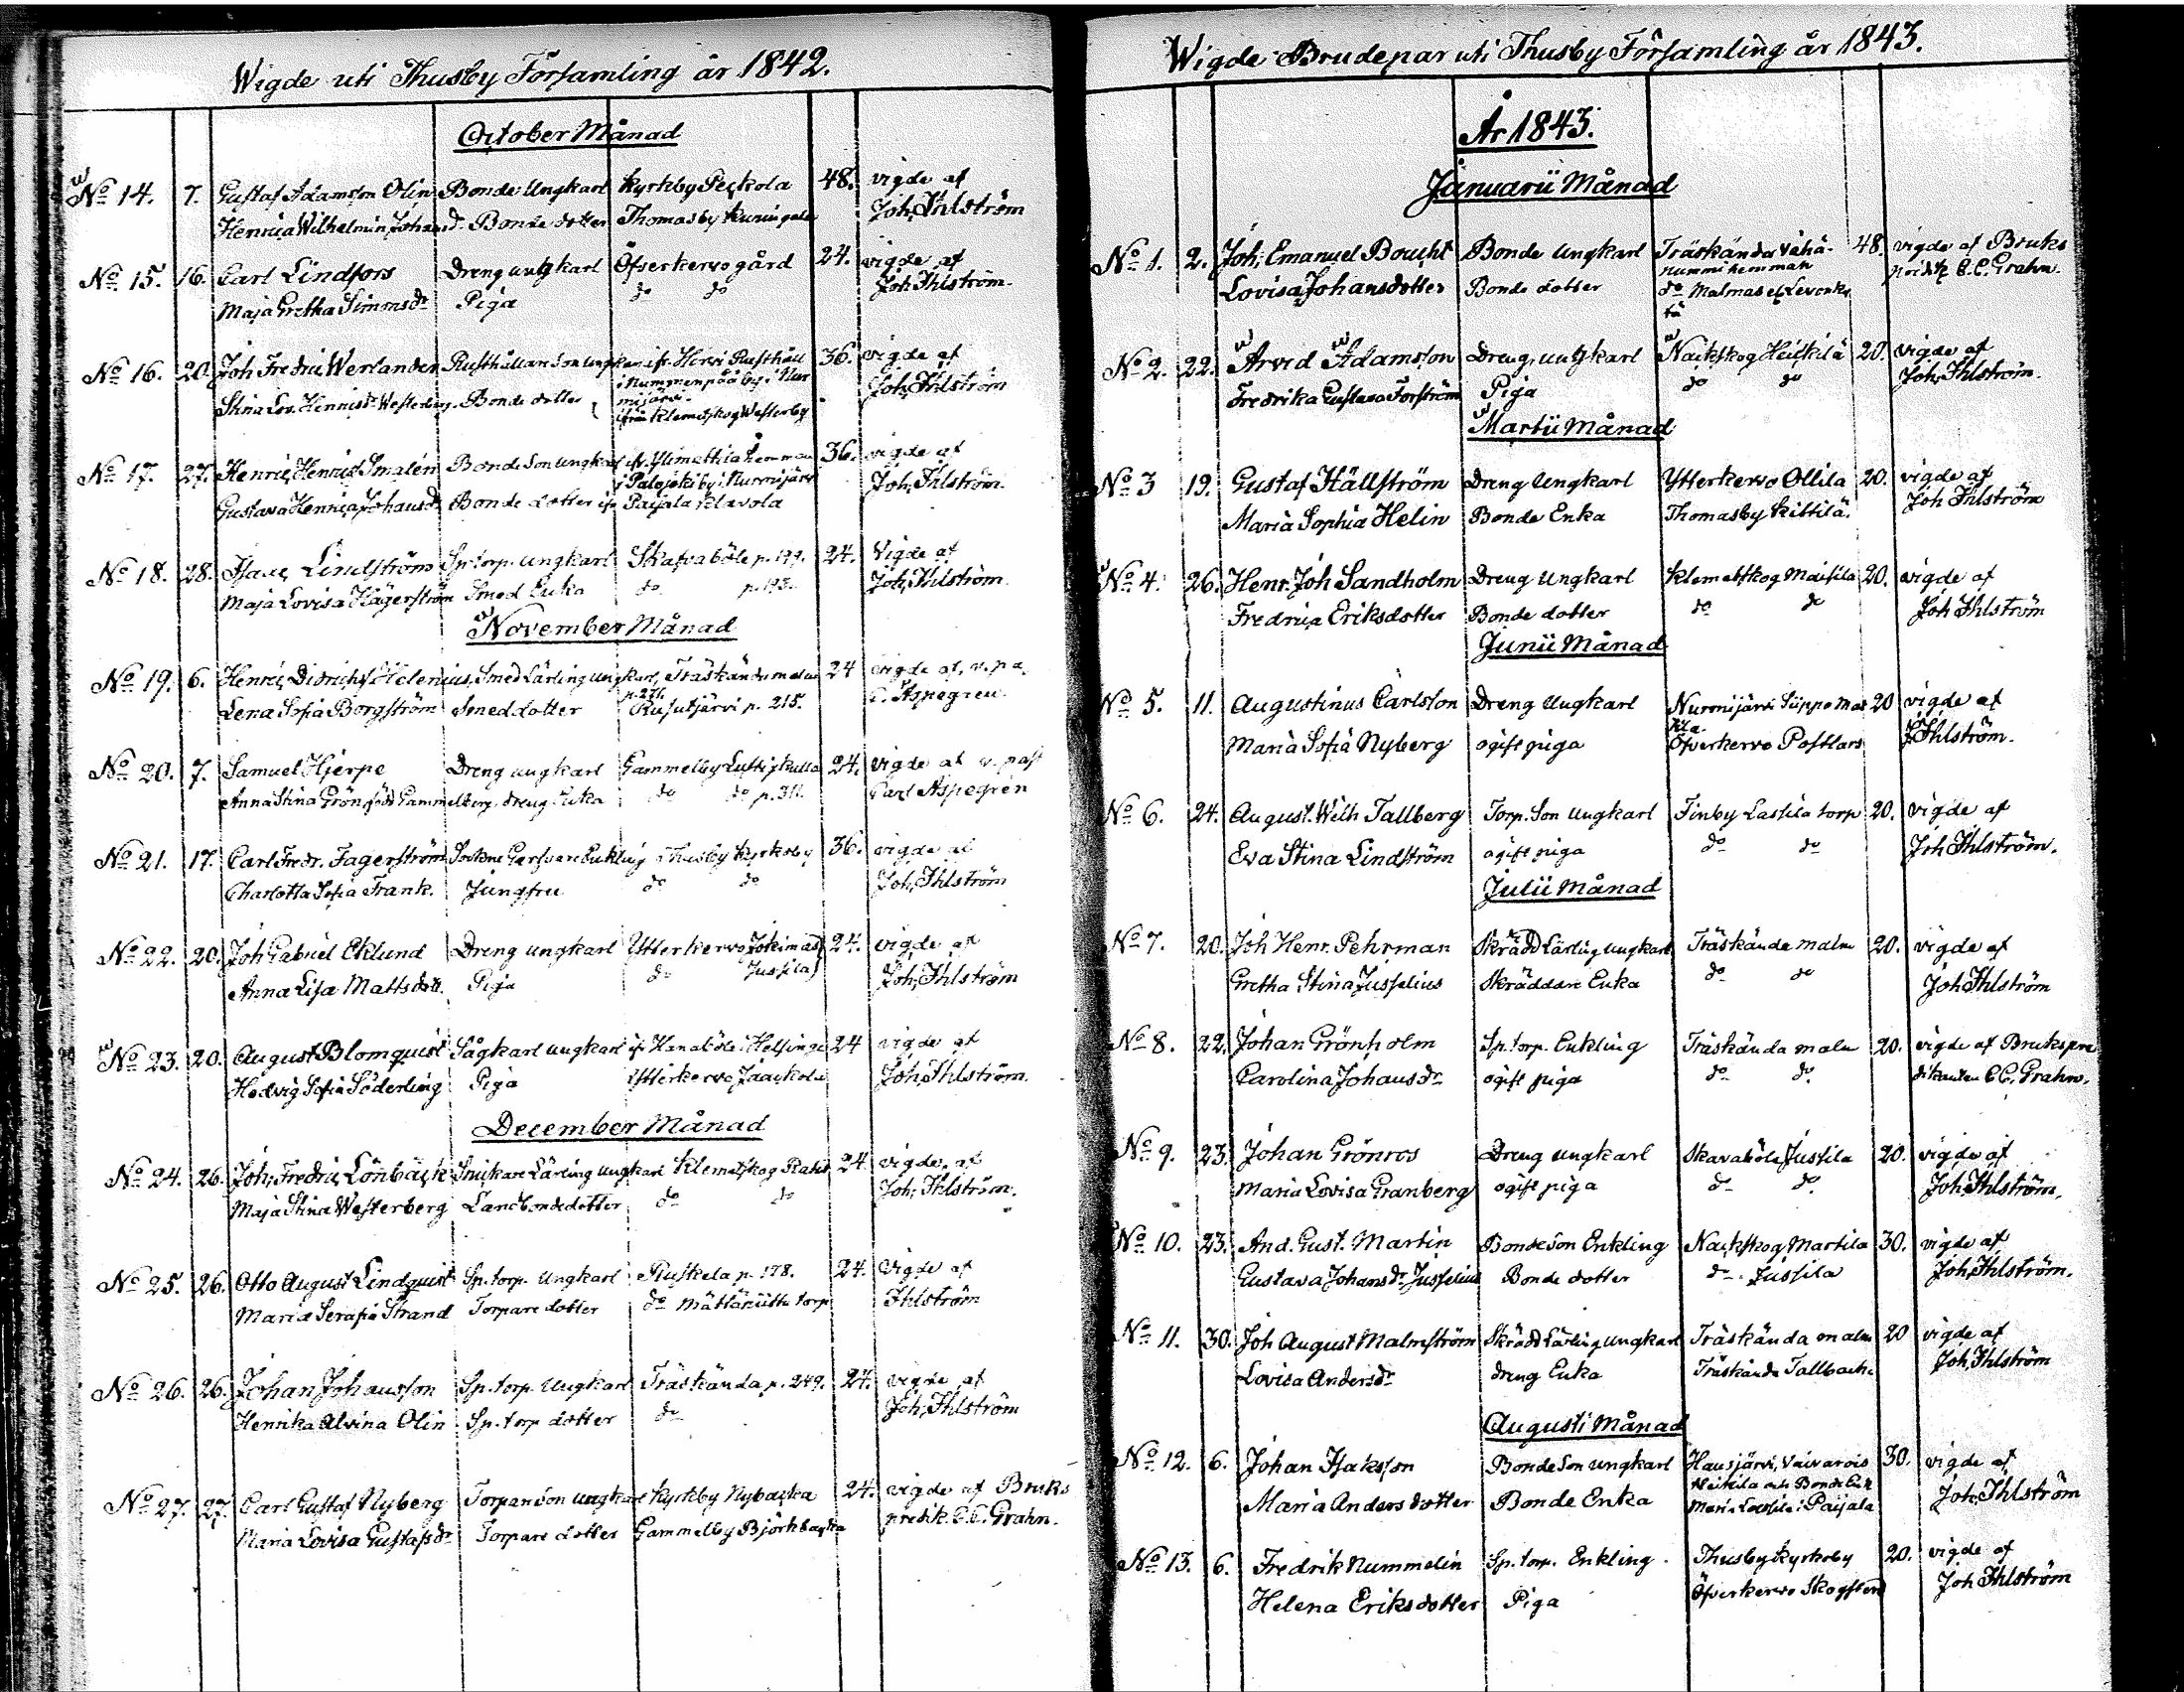 Wigde uti Thusby Församling år 1842.
October Månad
No 14. 7. Gustaf Adamsson Olin Bonde Ungkarl Kyrkby Peckola 48. vigde af
Henrica Wilhelmin. Johansdr Bonde dotter Thomasby Joh. Ihlström
No 15. 16. Carl Lindfors Dreng ungkarl Öfverkervo gård 24. vigde af
Maja Gretha Simonsdr Piga do do Joh. Ihlström.
No 16. 20. Joh Fredric Werlander Rusthållare Son ungkar ifr. Rusthåll 36. vigde af
i Nummenpää by i Nur
mijärvi.
Stina Lov. Henricsdr Westerberg. Bonde dotter ifrån Klemetskog Westerby Joh. Ihlström
No 17. 27. Henric Henricss Smalén Bonde Son ungkarl ifr. hemman 36. vigde af
i Palojoki by i Nurmijärvi
Gustava Henrica Johansdr Bonde dotter ifr Paijala Klavola Joh. Ihlström.
No 18. 28. Isaac Lindström Sp. torp. ungkarl Skafvaböle p. 199. 24. Vigde af
Maja Lovisa Hägerström Smed Enka do p. 193. Joh. Ihlström.
November Månad
No 19. 6. Henric Didrichss Helenius, Smed Lärling ungkarl, Träskända malm 24 vigde af, v. pa.
p. 271.
Lena Sofia Borgström Smed dotter Rusutjärvi p. 215. C. Aspegren.
No 20. 7. Samuel Hjerpe Dreng ungkarl Gammelby Lustigkulla 24. vigde af v. past
Anna Stina Grön född Gammelberg. dreng Enka do do p. 311. Carl Aspegrén
No 21. 17. Carl Fredr. Fagerström Enkling Thusby Kyrkoby 36. vigde af
Charlotta Sofia Frank. Jungfru do do Joh. Ihlström
No 22. 20. Joh Gabriel Eklund Dreng ungkarl Ytterkervo Jokimäs 24. vigde af
Anna Lisa Mattsdott. Piga do Jussila Joh. Ihlström
No 23. 20. August Blomquist Sågkarl ungkarl ifr Hanaböle i Helsinge 24 vigde af
Hedvig Sofia Söderling Piga Ytterkervo Jaackola Joh. Ihlström.
December Månad
No 24. 26. Joh. Fredric Lönbäck Snickare Lärling ungkarl Klemetskog 24. vigde. af
Maja Stina Westerberg Landbondedotter do do Joh. Ihlström.
No 25. 26. Otto August Lindquist Sp. torp. Ungkarl Ruskela p. 178. 24. Vigde af
Maria Serafia Strand Torpare dotter do torp Ihlström
No 26. 26. Johan Johansson Sp. torp. Ungkarl Träskända p. 249. 24. vigde af
Henrika Alvina Olin Sp. torp dotter do Joh. Ihlström
No 27. 27. Carl Gustaf Nyberg Torpareson ungkarl Kyrkby Nybacka 24. vigde af Bruks
Maria Lovisa Gustafsdr Torpare dotter Gammelby Björkbacka predik. C. C. Grahn.
Wigde Brudepar uti Thusby Församling år 1843.
År 1843.
Januarii Månad
No 1. 2. Joh. Emanuel Boucht Bonde Ungkarl Träskända Vähä- 48. vigde af Bruks
nummi hemman predik C. C. Grahn.
Lovisa Johansdotter Bonde dotter do Malmas
No 2. 22. Arvid Adamsson Dreng ungkarl Nackskog Heickilä 20. vigde af
Fredrika Gustava Forström Piga do do Joh. Ihlström.
Martii Månad
No 3 19. Gustaf Hällström Dreng Ungkarl Ytterkervo Ollila 20. vigde af
Maria Sophia Helin Bonde Enka Thomasby Kittilä. Joh Ihlström
No 4. 26. Henr. Joh Sandholm Dreng Ungkarl Klemetskog Maisila 20. vigde af
Fredrica Eriksdotter Bonde dotter do do Joh Ihlström
Junii Månad
No 5. 11. Augustinus Carlsson Dreng Ungkarl Nurmijärvi 20 vigde af
Maria Sofia Nyberg ogift piga Öfverkervo Postlars J Ihlström.
No 6. 24. August. Wilh Tallberg Torp. Son Ungkarl Finby Lassila torp 20. vigde af
Eva Stina Lindström ogift piga do do Joh Ihlström.
Julii Månad
No 7. 20. Joh Henr. Pehrman Skrädd Lärling ungkarl Träskända malm 20. vigde af
Gretha Stina Jusselius Skräddare Enka do do Joh Ihlström
No 8. 22. Johan Grönholm Sp. torp. Enkling Träskända malm 20. vigde af Brukspre
Carolina Johansdr ogift piga do do. dikanten C. C. Grahn.
No 9. 23. Johan Grönros Dreng ungkarl Skavaböle Jussila 20. vigde af
Maria Lovisa Granberg ogift piga do do. Joh. Ihlström.
No 10. 23. And. Gust. Martin Bonde Son Enkling Nackskog Martila 30. vigde af
Gustava Johansdr Jusselius Bonde dotter do. Jussila Joh. Ihlström.
No 11. 30. Joh August Malmström Skrädd Lärling ungkarl Träskända malm 20 vigde af
Lovisa Andersdr dreng Enka Träskända Tallbacka Joh. Ihlström
Augusti Månad
No 12. 6. Johan Isaksson Bonde Son ungkarl Hausjärvi, Vaivarois 30. vigde af
Heikila och Bonde Enk
Maria Anders dotter Bonde Enka Maria Paijala Joh. Ihlström
No 13. 6. Fredrik Nummelin Sp. torp. Enkling. Thusby Kyrkoby 20. vigde af
Helena Eriksdotter Piga Öfverkervo Skogster Joh Ihlström